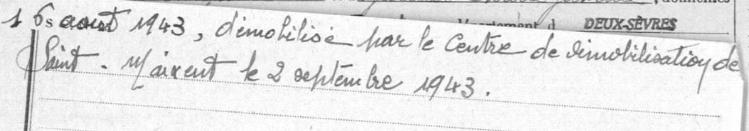 DEUX-SÈVRES
6 aout 1943, démobilisé par le Centre de démobilisation de
Saint-Maixent le 2 septembre 1943.